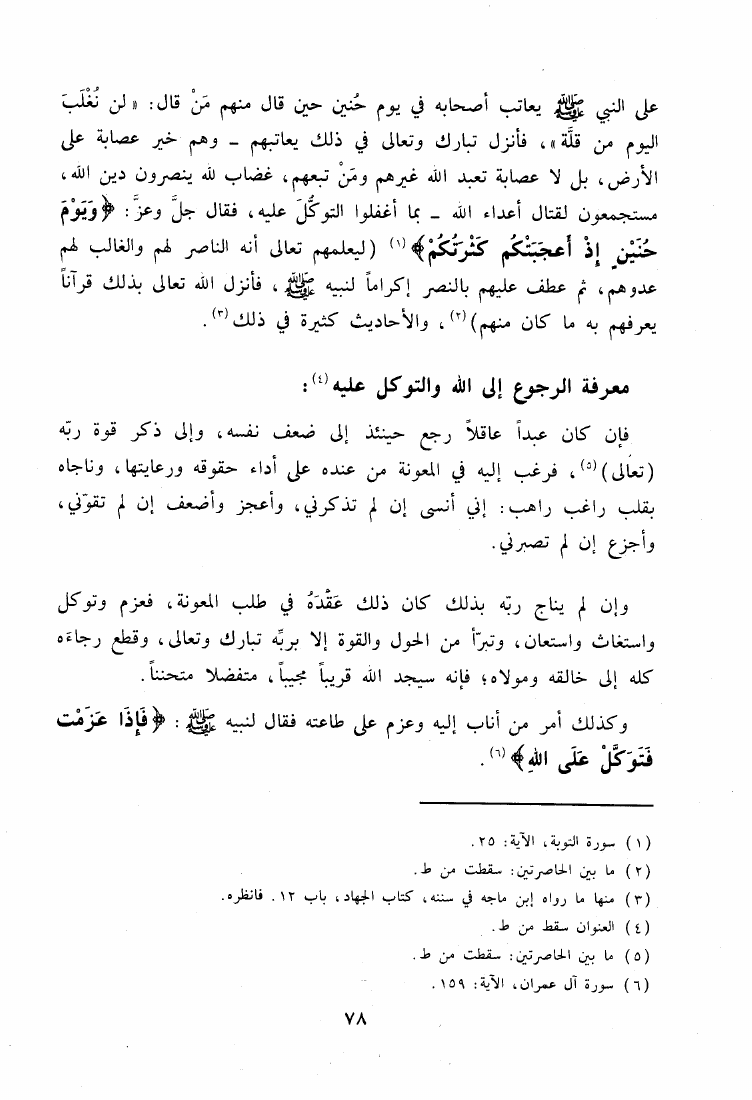 على النبي ﷺ يعاتب أصحابه في يوم حُنين حين قال منهم مَنْ قال: «لن نُغْلَبَ
اليوم من قلَّة»، فأنزل تبارك وتعالى في ذلك يعاتبهم ـ وهم خير عصابة على
الأرض، بل لا عصابة تعبد الله غيرهم ومَنْ تبعهم، غضاب لله ينصرون دين الله،
مستجمعون لقتال أعداء الله ـ بما أغفلوا التوكُّلَ عليه، فقال جلَّ وعزَّ: ﴿وَيَوْمَ
حُنَيْنٍ إِذْ أَعجَبَتْكُم كَثْرَتُكُمْ﴾(١) (ليعلمهم تعالى أنه الناصر لهم والغالب لهم
عدوهم، ثم عطف عليهم بالنصر إكراماً لنبيه ﷺ، فأنزل الله تعالى بذلك قرآناً
يعرفهم به ما كان منهم)(٢)، والأحاديث كثيرة في ذلك(٣).
معرفة الرجوع إلى الله والتوكل عليه(٤):
فإن كان عبداً عاقلاً رجع حينئذ إلى ضعف نفسه، وإلى ذكر قوة ربّه
(تعالى)(٥)، فرغب إليه في المعونة من عنده على أداء حقوقه ورعايتها، وناجاه
بقلب راغب راهب: إني أنسى إن لم تذكرني، وأعجز وأضعف إن لم تقوّني،
وأجزع إن لم تصبرني.
وإن لم يناج ربّه بذلك كان ذلك عَقْدَهُ في طلب المعونة، فعزم وتوكل
واستغاث واستعان، وتبرّأ من الحول والقوة إلا بربِّه تبارك وتعالى، وقطع رجاءَه
كله إلى خالقه ومولاه؛ فإنه سيجد الله قريباً مجيباً، متفضلا متحنناً.
وكذلك أمر من أناب إليه وعزم على طاعته فقال لنبيه ﷺ: ﴿فَإِذَا عَزَمْت
فَتَوَكَّلْ عَلَى اللهِ﴾(٦).
(١) سورة التوبة، الآية: ٢٥.
(٢) ما بين الحاصرتين: سقطت من ط.
(٣) منها ما رواه إبن ماجه في سننه، كتاب الجهاد، باب ١٢. فانظره.
(٤) العنوان سقط من ط.
(٥) ما بين الحاصرتين: سقطت من ط.
(٦) سورة آل عمران، الآية: ١٥٩.
٧٨